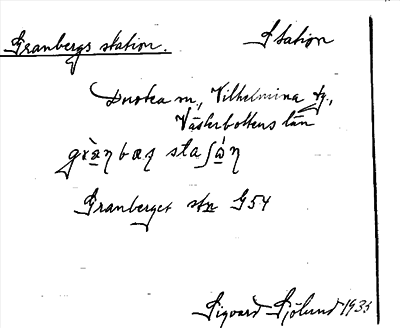 Granbergs station.
Station
Dorotea sn, Vilhelmina tg.,
Västerbottens län
gràŋbæg sta∫ώŋ
Granberget stn G54
Sigvard Sjölund 1935